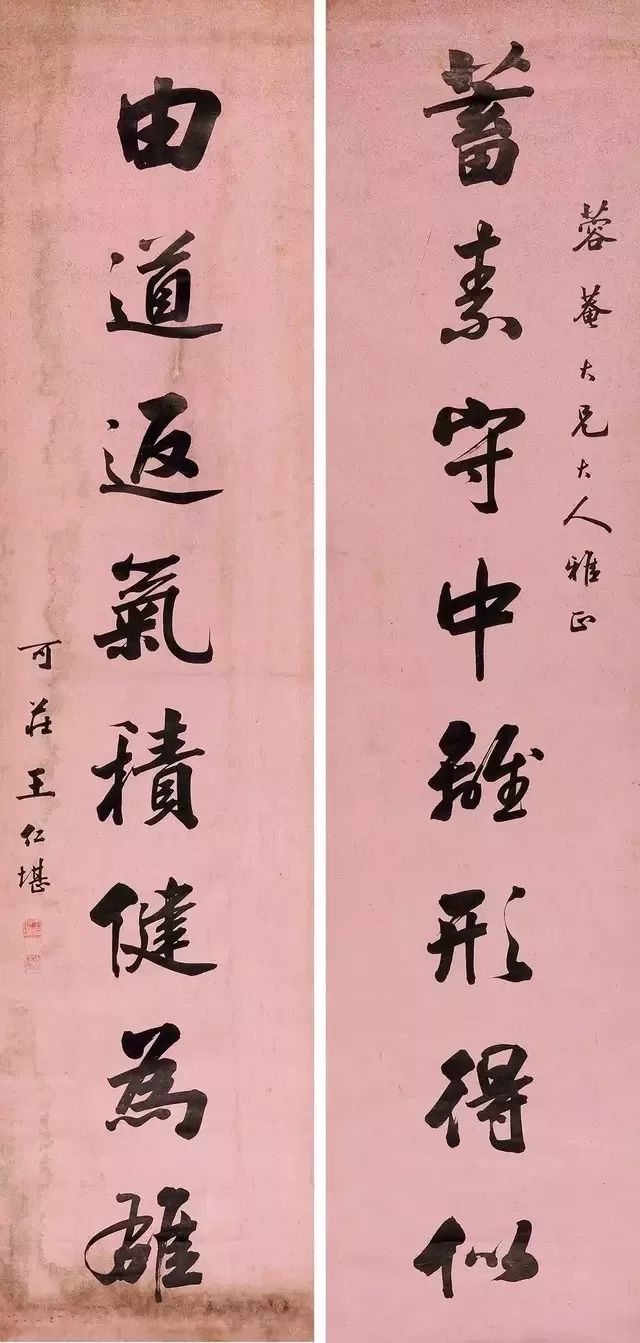 蓉菴大兄大人雅正
蓄素守中離形得似
由道返氣積健為雄
可莊王仁堪